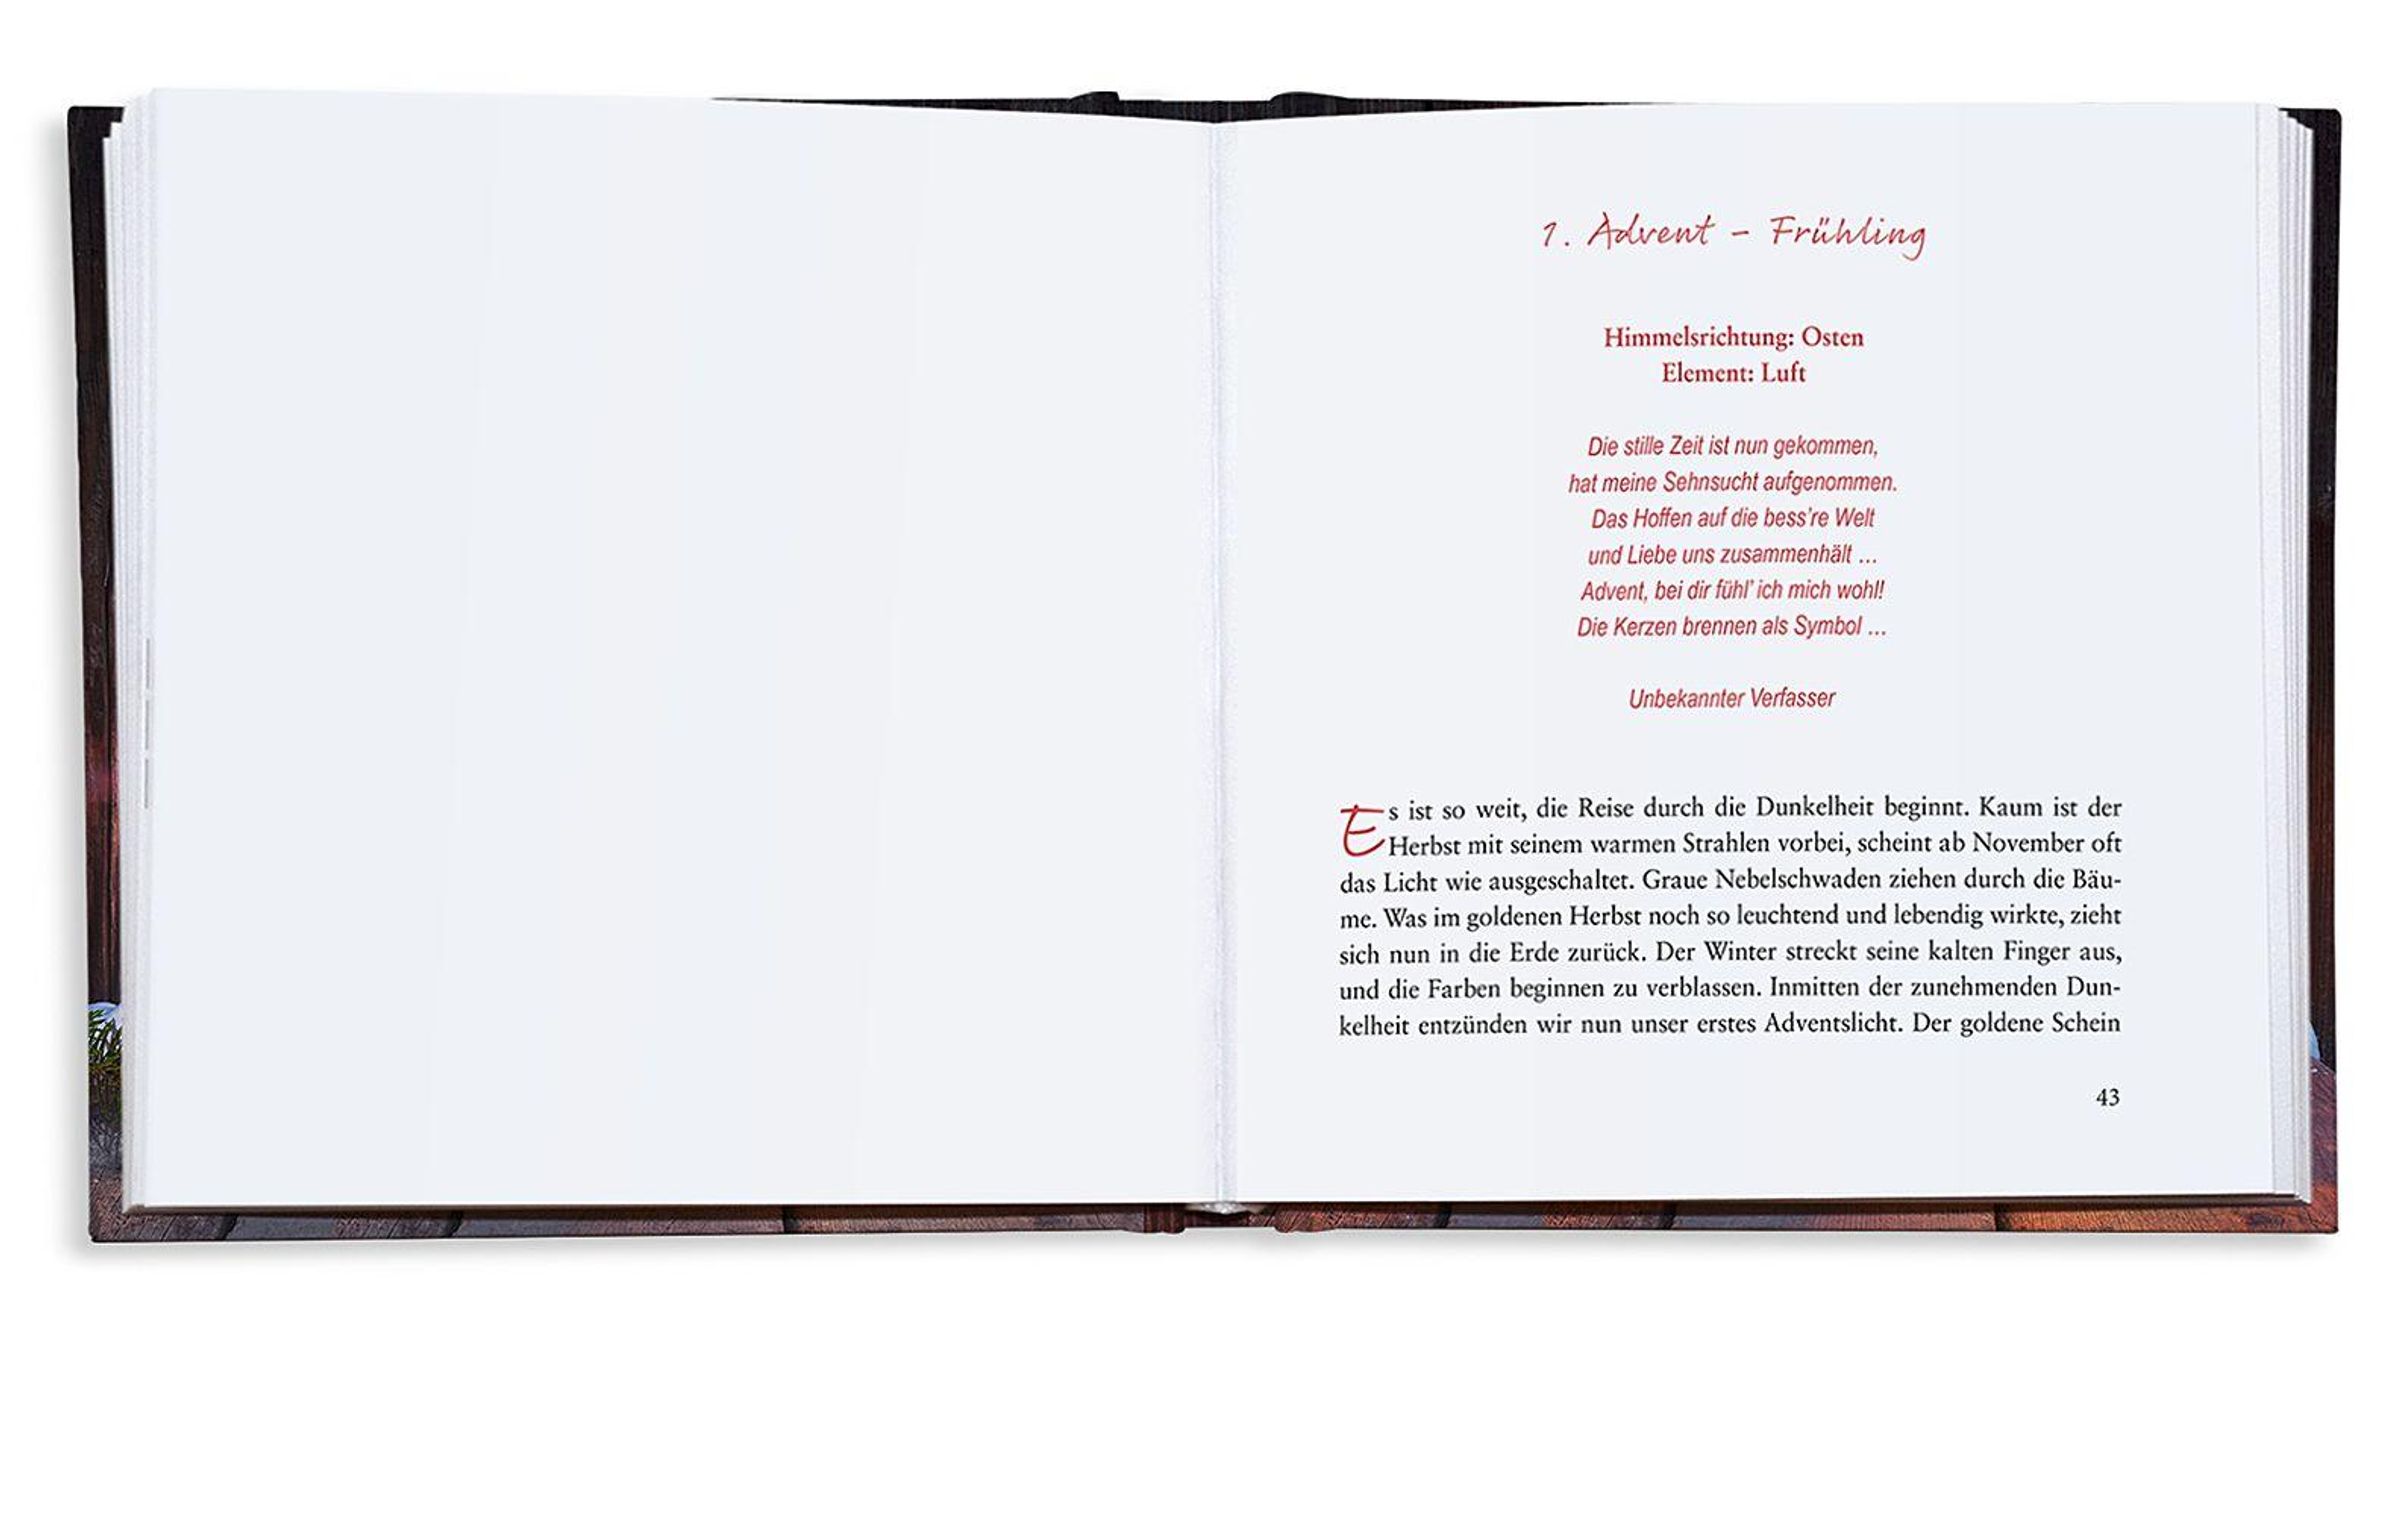 1. Advent – Frühling
Himmelsrichtung: Osten
Element: Luft
Die stille Zeit ist nun gekommen,
hat meine Sehnsucht aufgenommen.
Das Hoffen auf die bess're Welt
und Liebe uns zusammenhält ...
Advent, bei dir fühl' ich mich wohl!
Die Kerzen brennen als Symbol ...
Unbekannter Verfasser
Es ist so weit, die Reise durch die Dunkelheit beginnt. Kaum ist der
Herbst mit seinem warmen Strahlen vorbei, scheint ab November oft
das Licht wie ausgeschaltet. Graue Nebelschwaden ziehen durch die Bäu-
me. Was im goldenen Herbst noch so leuchtend und lebendig wirkte, zieht
sich nun in die Erde zurück. Der Winter streckt seine kalten Finger aus,
und die Farben beginnen zu verblassen. Inmitten der zunehmenden Dun-
kelheit entzünden wir nun unser erstes Adventslicht. Der goldene Schein
43